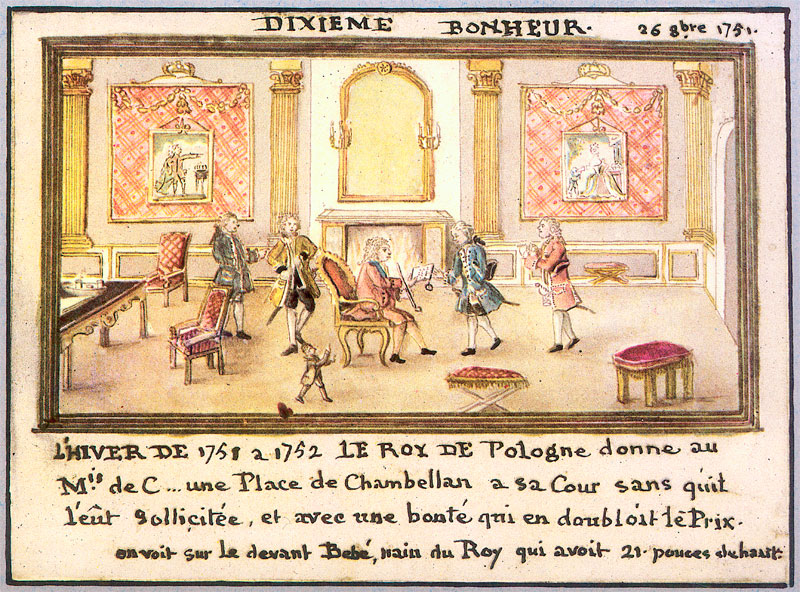 DIXIEME BONHEUR. 26 8bre 1751.
L'HIVER DE 1751 a 1752 LE ROY DE Pologne donne au
Mis de C... une Place de Chambellan a sa Cour sans qu'il
l'eût sollicitée, et avec une bonté qui en doubloit le Prix.
on voit sur le devant Bebé, nain du Roy qui avoit 21. pouces de haut.